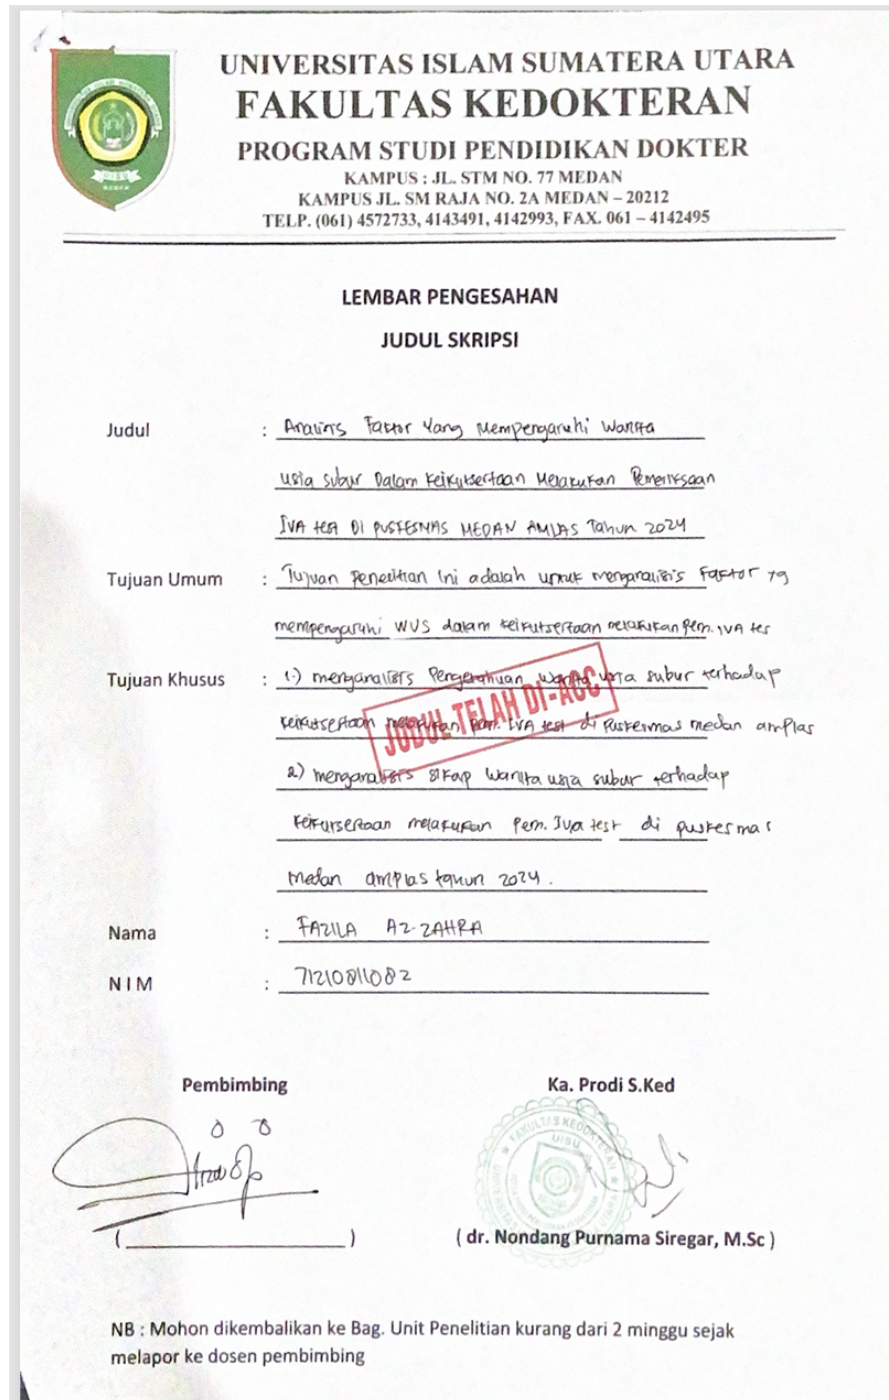 UNIVERSITAS ISLAM SUMATERA UTARA
FAKULTAS KEDOKTERAN
PROGRAM STUDI PENDIDIKAN DOKTER
KAMPUS : JL. STM NO. 77 MEDAN
KAMPUS JL. SM RAJA NO. 2A MEDAN – 20212
TELP. (061) 4572733, 4143491, 4142993, FAX. 061 – 4142495
LEMBAR PENGESAHAN
JUDUL SKRIPSI
Judul : Analisis Faktor Yang Mempengaruhi Wanita
usia subur Dalam Keikutsertaan Melakukan Pemeriksaan
IVA test DI PUSKESMAS MEDAN AMLAS Tahun 2024
Tujuan Umum : Tujuan Penelitian Ini adalah untuk menganalisis Faktor yg
mempengaruhi WUS dalam keikutsertaan melakukan pem. IVA tes
Tujuan Khusus : 1.) menganalisis Pengetahuan Wanita usia subur terhadap
keikutsertaan melakukan pem. IVA test di Puskesmas medan amplas
JUDUL TELAH DI-ACC
2) menganalisis sikap Wanita usia subur terhadap
keikutsertaan melakukan Pem. Iva test di puskesmas
Medan amplas tahun 2024.
Nama : FAZILA AZ-ZAHRA
N I M : 71210811082
Pembimbing Ka. Prodi S.Ked
FAKULTAS KEDOKTERAN
UISU
( ) ( dr. Nondang Purnama Siregar, M.Sc )
NB : Mohon dikembalikan ke Bag. Unit Penelitian kurang dari 2 minggu sejak
melapor ke dosen pembimbing